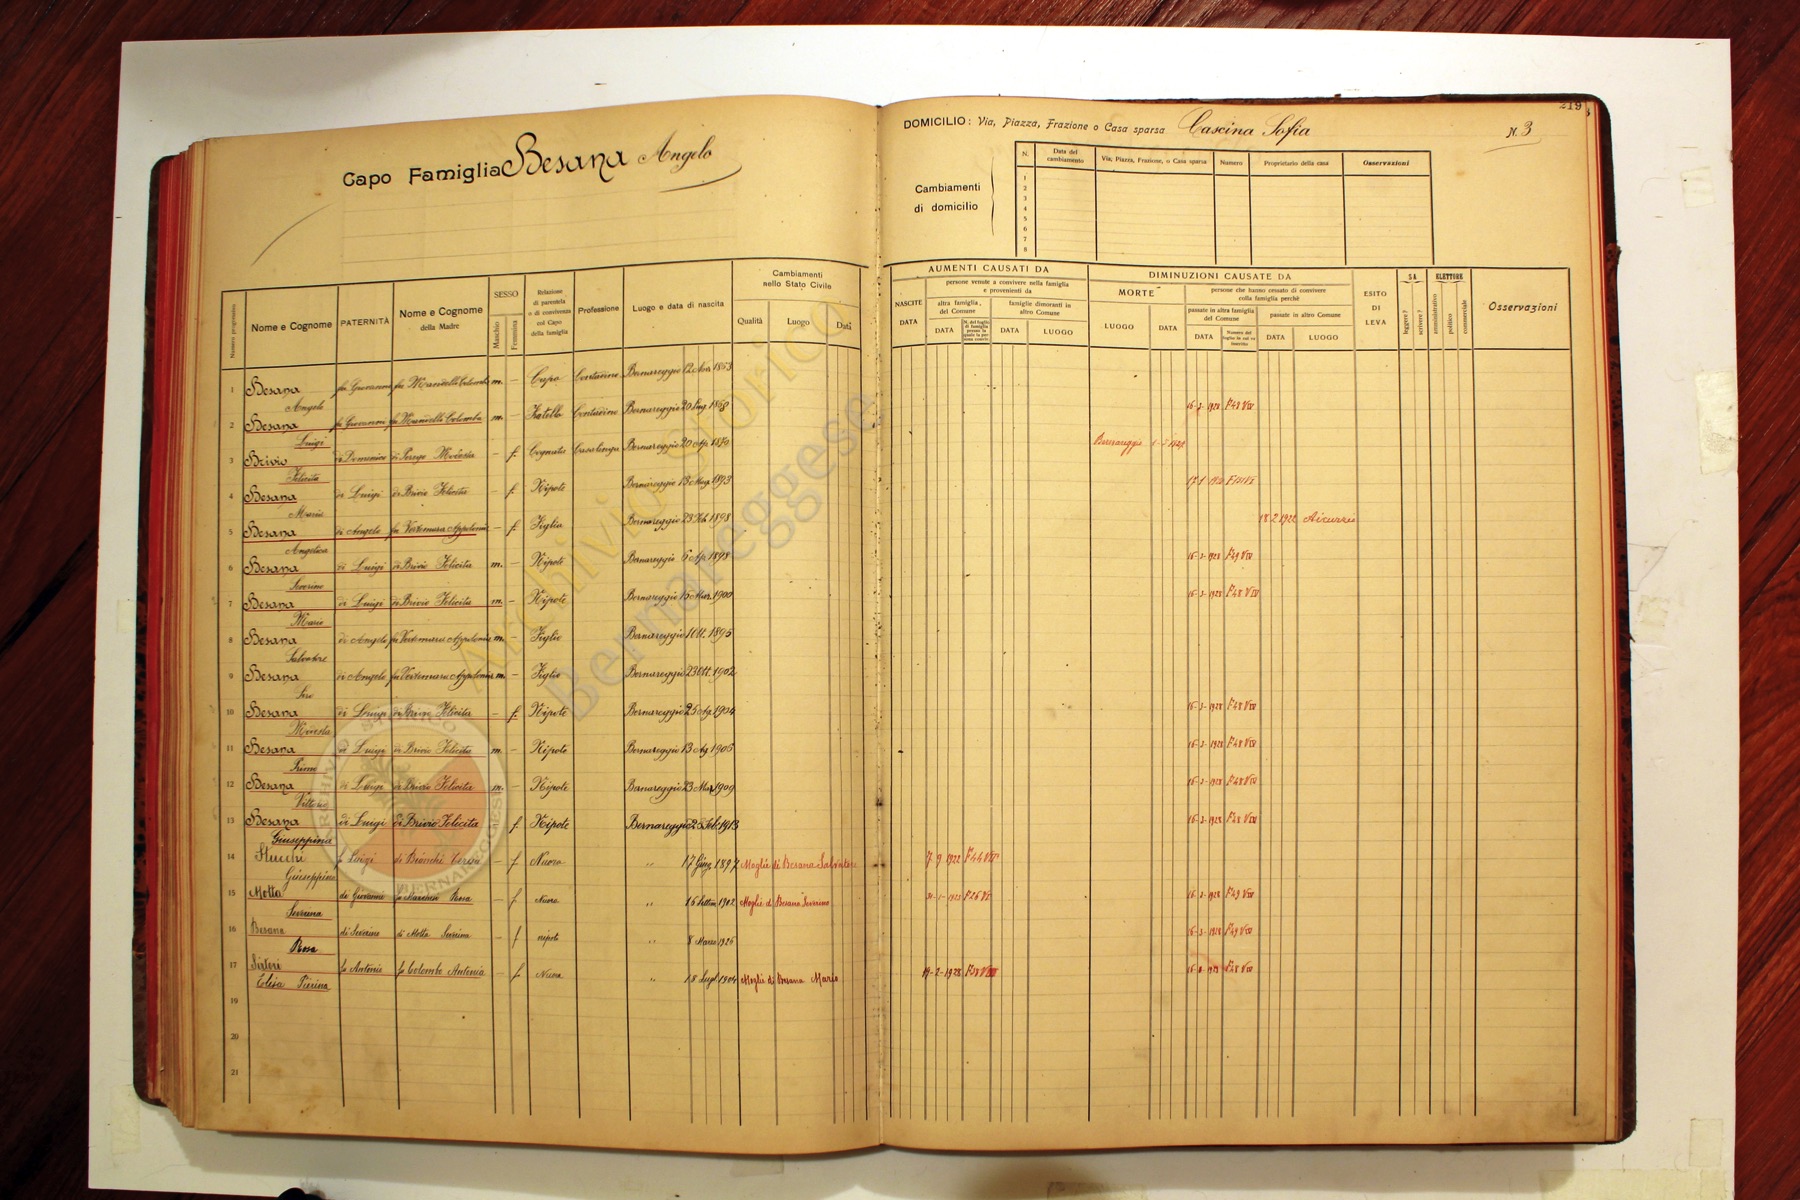 219
Capo Famiglia Besana Angelo
DOMICILIO: Via, Piazza, Frazione o Casa sparsa Cascina Sofia
N. 3
Cambiamenti di domicilio
N. Data del cambiamento Via, Piazza, Frazione, o Casa sparsa Numero Proprietario della casa Osservazioni
1
2
3
4
5
6
7
8
Numero progressivo Nome e Cognome PATERNITÀ Nome e Cognome della Madre SESSO Maschio Femmina Relazione di parentela o di convivenza col Capo della famiglia Professione Luogo e data di nascita Cambiamenti nello Stato Civile Qualità Luogo Data
AUMENTI CAUSATI DA
NASCITE DATA
persone venute a convivere nella famiglia e provenienti da
altra famiglia del Comune DATA
famiglie dimoranti in altro Comune DATA LUOGO
DIMINUZIONI CAUSATE DA
MORTE LUOGO DATA
persone che hanno cessato di convivere colla famiglia perchè
passate in altra famiglia del Comune DATA Numero del foglio in cui va inscritto
passate in altro Comune DATA LUOGO
ESITO DI LEVA
SA leggere? scrivere?
ELETTORE amministrativo politico commerciale
Osservazioni
1 Besana Angelo fu Giovanni fu Mandelli Colomba m. - Capo Contadino Bernareggio 12 Nov. 1863
2 Besana Luigi fu Giovanni fu Mandelli Colomba m. - Fratello Contadino Bernareggio 20 1868 16-3-1928 F48 VIV
3 Brivio Felicita di Domenico di Perego Modesta - f. Cognata Casalinga Bernareggio 20 Ap. 1870 Bernareggio
4 Besana Maria di Luigi di Brivio Felicita - f. Nipote Bernareggio 13 Mag. 1893
5 Besana Angelica di Angelo fu Vertemara Appolonia - f. Figlia Bernareggio 23 1898 18-2-1922 Aicurzio
6 Besana Severino di Luigi di Brivio Felicita m. - Nipote Bernareggio 6 Ap. 1898 16-3-1928 F49 VIV
7 Besana Mario di Luigi di Brivio Felicita m. - Nipote Bernareggio 15 Mar. 1900 16-3-1928 F48 VIV
8 Besana Salvatore di Angelo fu Vertemara Appolonia m. - Figlio Bernareggio 1 Ott. 1895
9 Besana Siro di Angelo fu Vertemara Appolonia m. - Figlio Bernareggio 23 Ott. 1902
10 Besana Modesta di Luigi di Brivio Felicita - f. Nipote Bernareggio 25 Ag. 1904 16-3-1928 F48 VIV
11 Besana Primo di Luigi di Brivio Felicita m. - Nipote Bernareggio 13 Ag. 1906 16-3-1928 F48 VIV
12 Besana Vittorio di Luigi di Brivio Felicita m. - Nipote Bernareggio 23 Mar. 1909 16-3-1928 F48 VIV
13 Besana Giuseppina di Luigi di Brivio Felicita f. Nipote Bernareggio 2 Feb. 1913 16-3-1928 F48 VIV
14 Stucchi Giuseppina fu Luigi di Bianchi - f Nuora " 17 Giug. 1897 Moglie di Besana Salvatore 7 9 1922 F44
15 Motta Severina di Giovanni fu Rosa - f Nuora " 16 Settem 1902 Moglie di Besana Severino 31-1-1925 F26 16-3-1928 F49 VIV
16 Besana Rosa di Severino di Motta Severina - f nipote " 8 Marzo 1926 16-3-1928 F49 VIV
17 Sirtori Elisa Pierina fu Antonio fu Colombo Antonia - f Nuora " 18 Lugl. 1904 Moglie di Besana Mario 19-2-1928 F48 VIV
19
20
21
Archivio Storico
Bernareggese
ARCHIVIO STORICO BERNAREGGESE